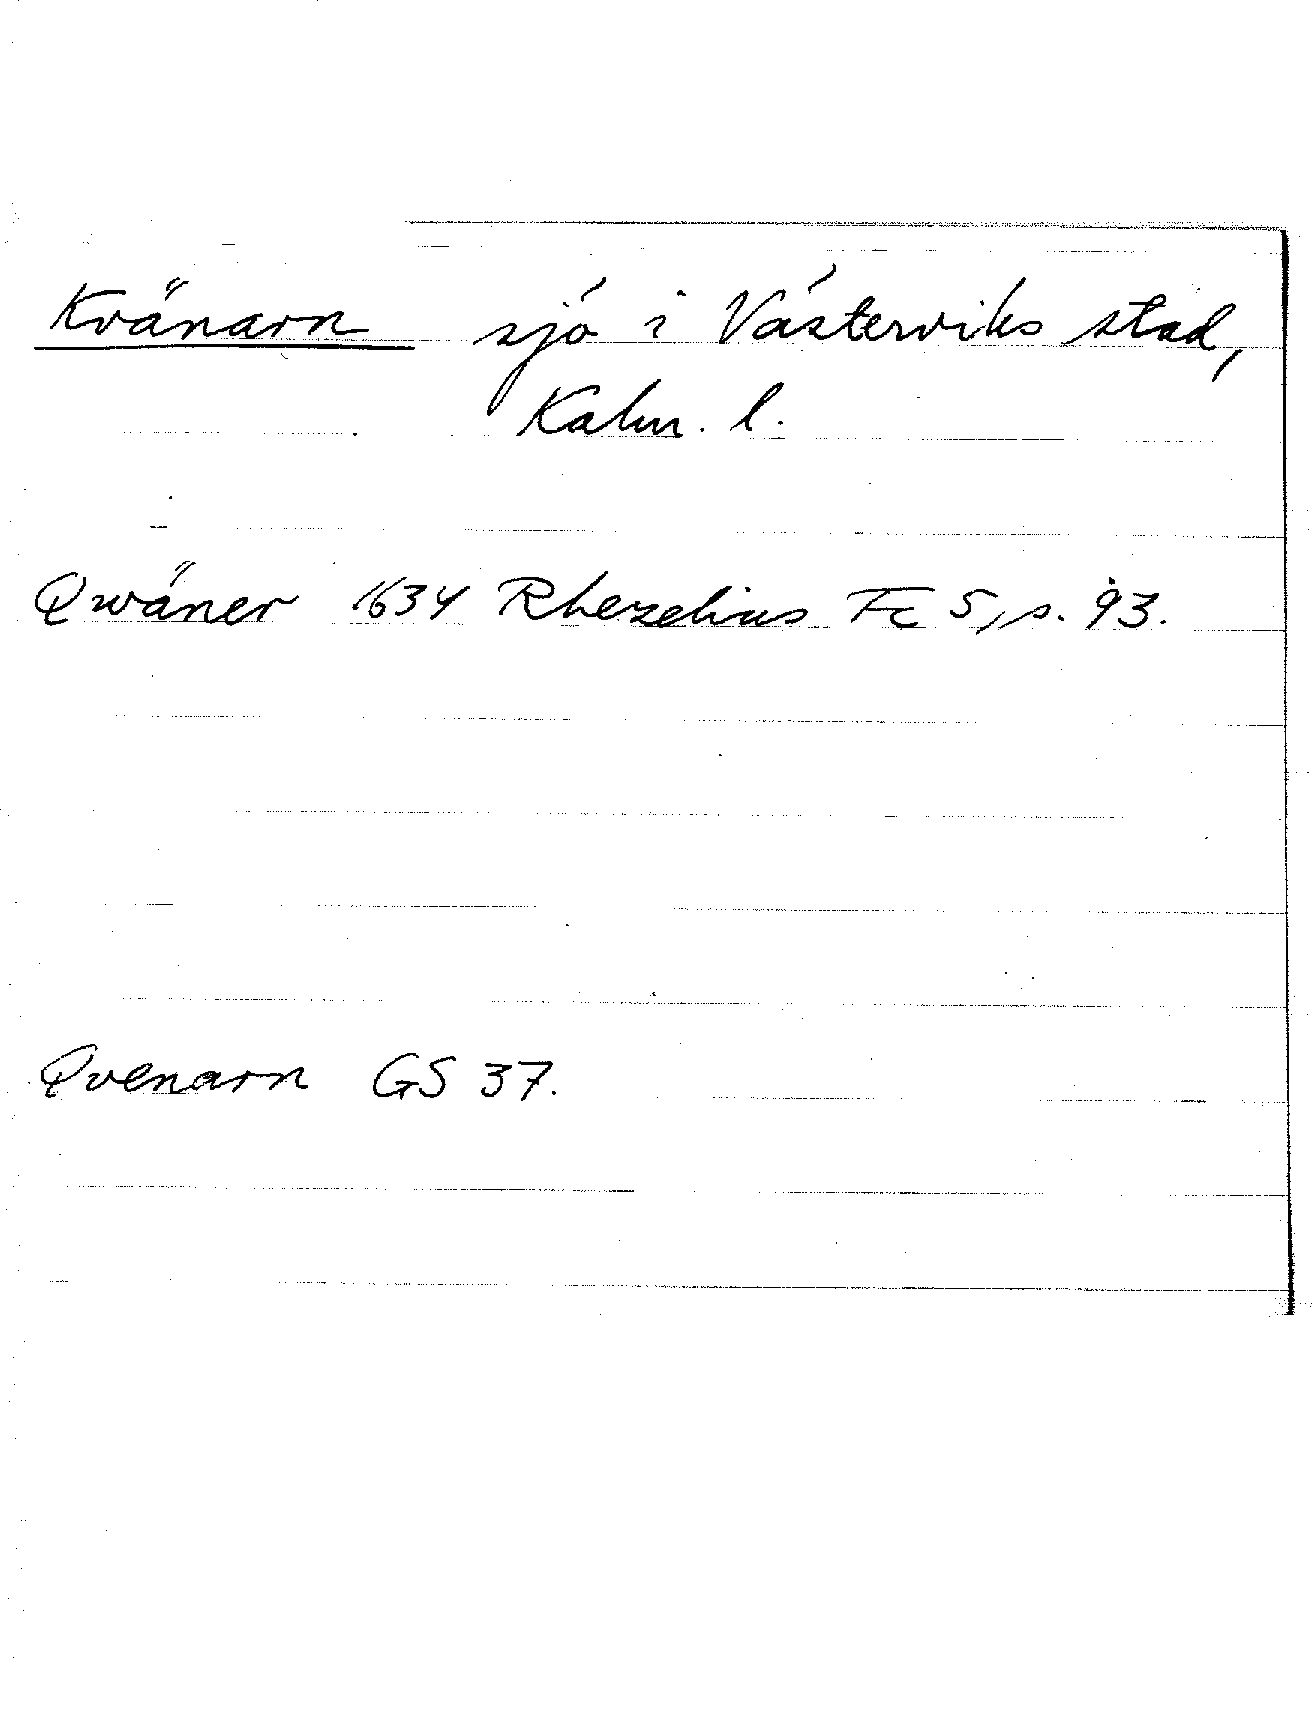 Kvänarn sjö i Västerviks stad,
Kalm. l.
Qwäner 1634 Rhezelius Fc 5, s. 93.
Qvenarn GS 37.